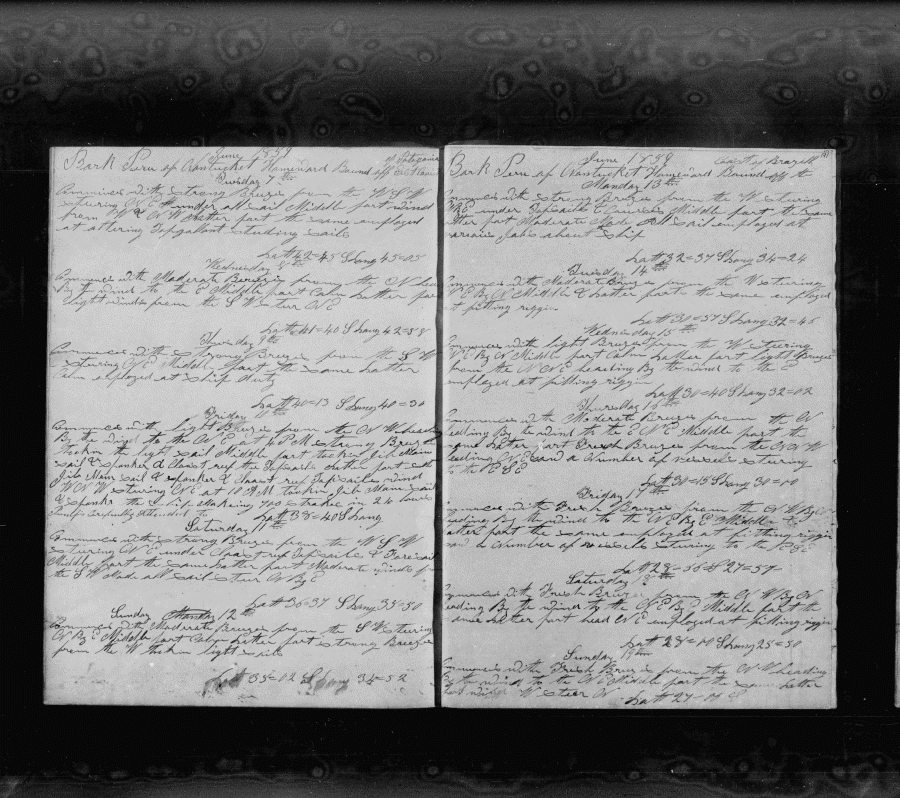 June 1859
Bark Peru of Nantucket Homeward Bound off
of Patagonia
Tuesday 7th
Commences with strong Breeze from the W S W
steering N E under all sail Middle part wind
from W & N W Latter part the same employed
at altering Topgallant studding sails
Latt 42=45 S Long 45=05
Wednesday 8th
Commences with Moderate Breezes from the N
By the wind to the E Middle part Calm Latter part
light winds from the S W steer N E
Latt 41=40 S Long 42=58
Thursday 9th
Commences with strong Breeze from the S W
steering N E Middle part the same Latter
Calm employed at ship duty
Latt 40=13 S Long 40=30
Friday 10th
Commences with light Breeze from the N W heading
By the wind to the N E at 4 P M strong Breeze
took in the light sail Middle part took in Jib Main
sail & spanker & Close reef the Topsails Latter part
Jib Main sail & spanker & Close reef Topsails wind
W N W steering N E at 10 A M took in Jib Main sail
& spanker the ship Making 700 strokes in 24 hours
Pumps Carefully Attended To
Latt 38=40 S Long
Saturday 11th
Commences with strong Breeze from the W S W
steering N E under Close reef Topsails & Foresail
Middle part the same Latter part Moderate wind
the S W Made all sail steer N By E
Latt 36=37 S Long 35=50
Sunday 12th
Commences with Moderate Breeze from the S W steering
N By E Middle part Calm Latter part strong Breeze
from the W took in light sails
Latt 35=02 S Long 34=52
June 1859
Coast of Brazill
Bark Peru of Nantucket Homeward Bound off the
Monday 13th
with strong Breezes from the W steering
N E under Topsails & Courses Middle part the same
Latter part Moderate all sail employed at
various Jobs about ship
Latt 32=37 S Long 34=24
Tuesday 14th
Commences with Moderate Breeze from the W steering
N E By N Middle & Latter part the same employed
at fitting riggin
Latt 30=57 S Long 32=45
Wednesday 15th
Commences with light Breeze from the W steering
N E By N Middle part Calm Latter part light Breeze
from the N N E heading By the wind to the E
employed at fitting riggin
Latt 30=40 S Long 32=02
Thursday 16th
Commences with Moderate Breeze from the N
heading By the wind to the E N E Middle part the
same Latter part Fresh Breeze from the N N W
heading N E and a Number of vessels steering
to the E S E
Latt 30=15 S Long 30=00
Friday 17th
Commences with Fresh Breezes from the N W By N
heading By the wind to the N E By E Middle &
Latter part the same employed at fitting riggin
and a Number of vessels steering to the E S E
Latt 28=56 S 27=57
Saturday 18th
Commences with Fresh Breeze from the N W By N
heading By the wind to the N E By E Middle part the
same Latter part head N E employed at fitting riggin
Latt 28=00 S Long 25=50
Sunday 19th
Commences with Fresh Breeze from the N W heading
By the wind to the N E Middle part the same Latter
part wind W steer N
Latt 27=04 S